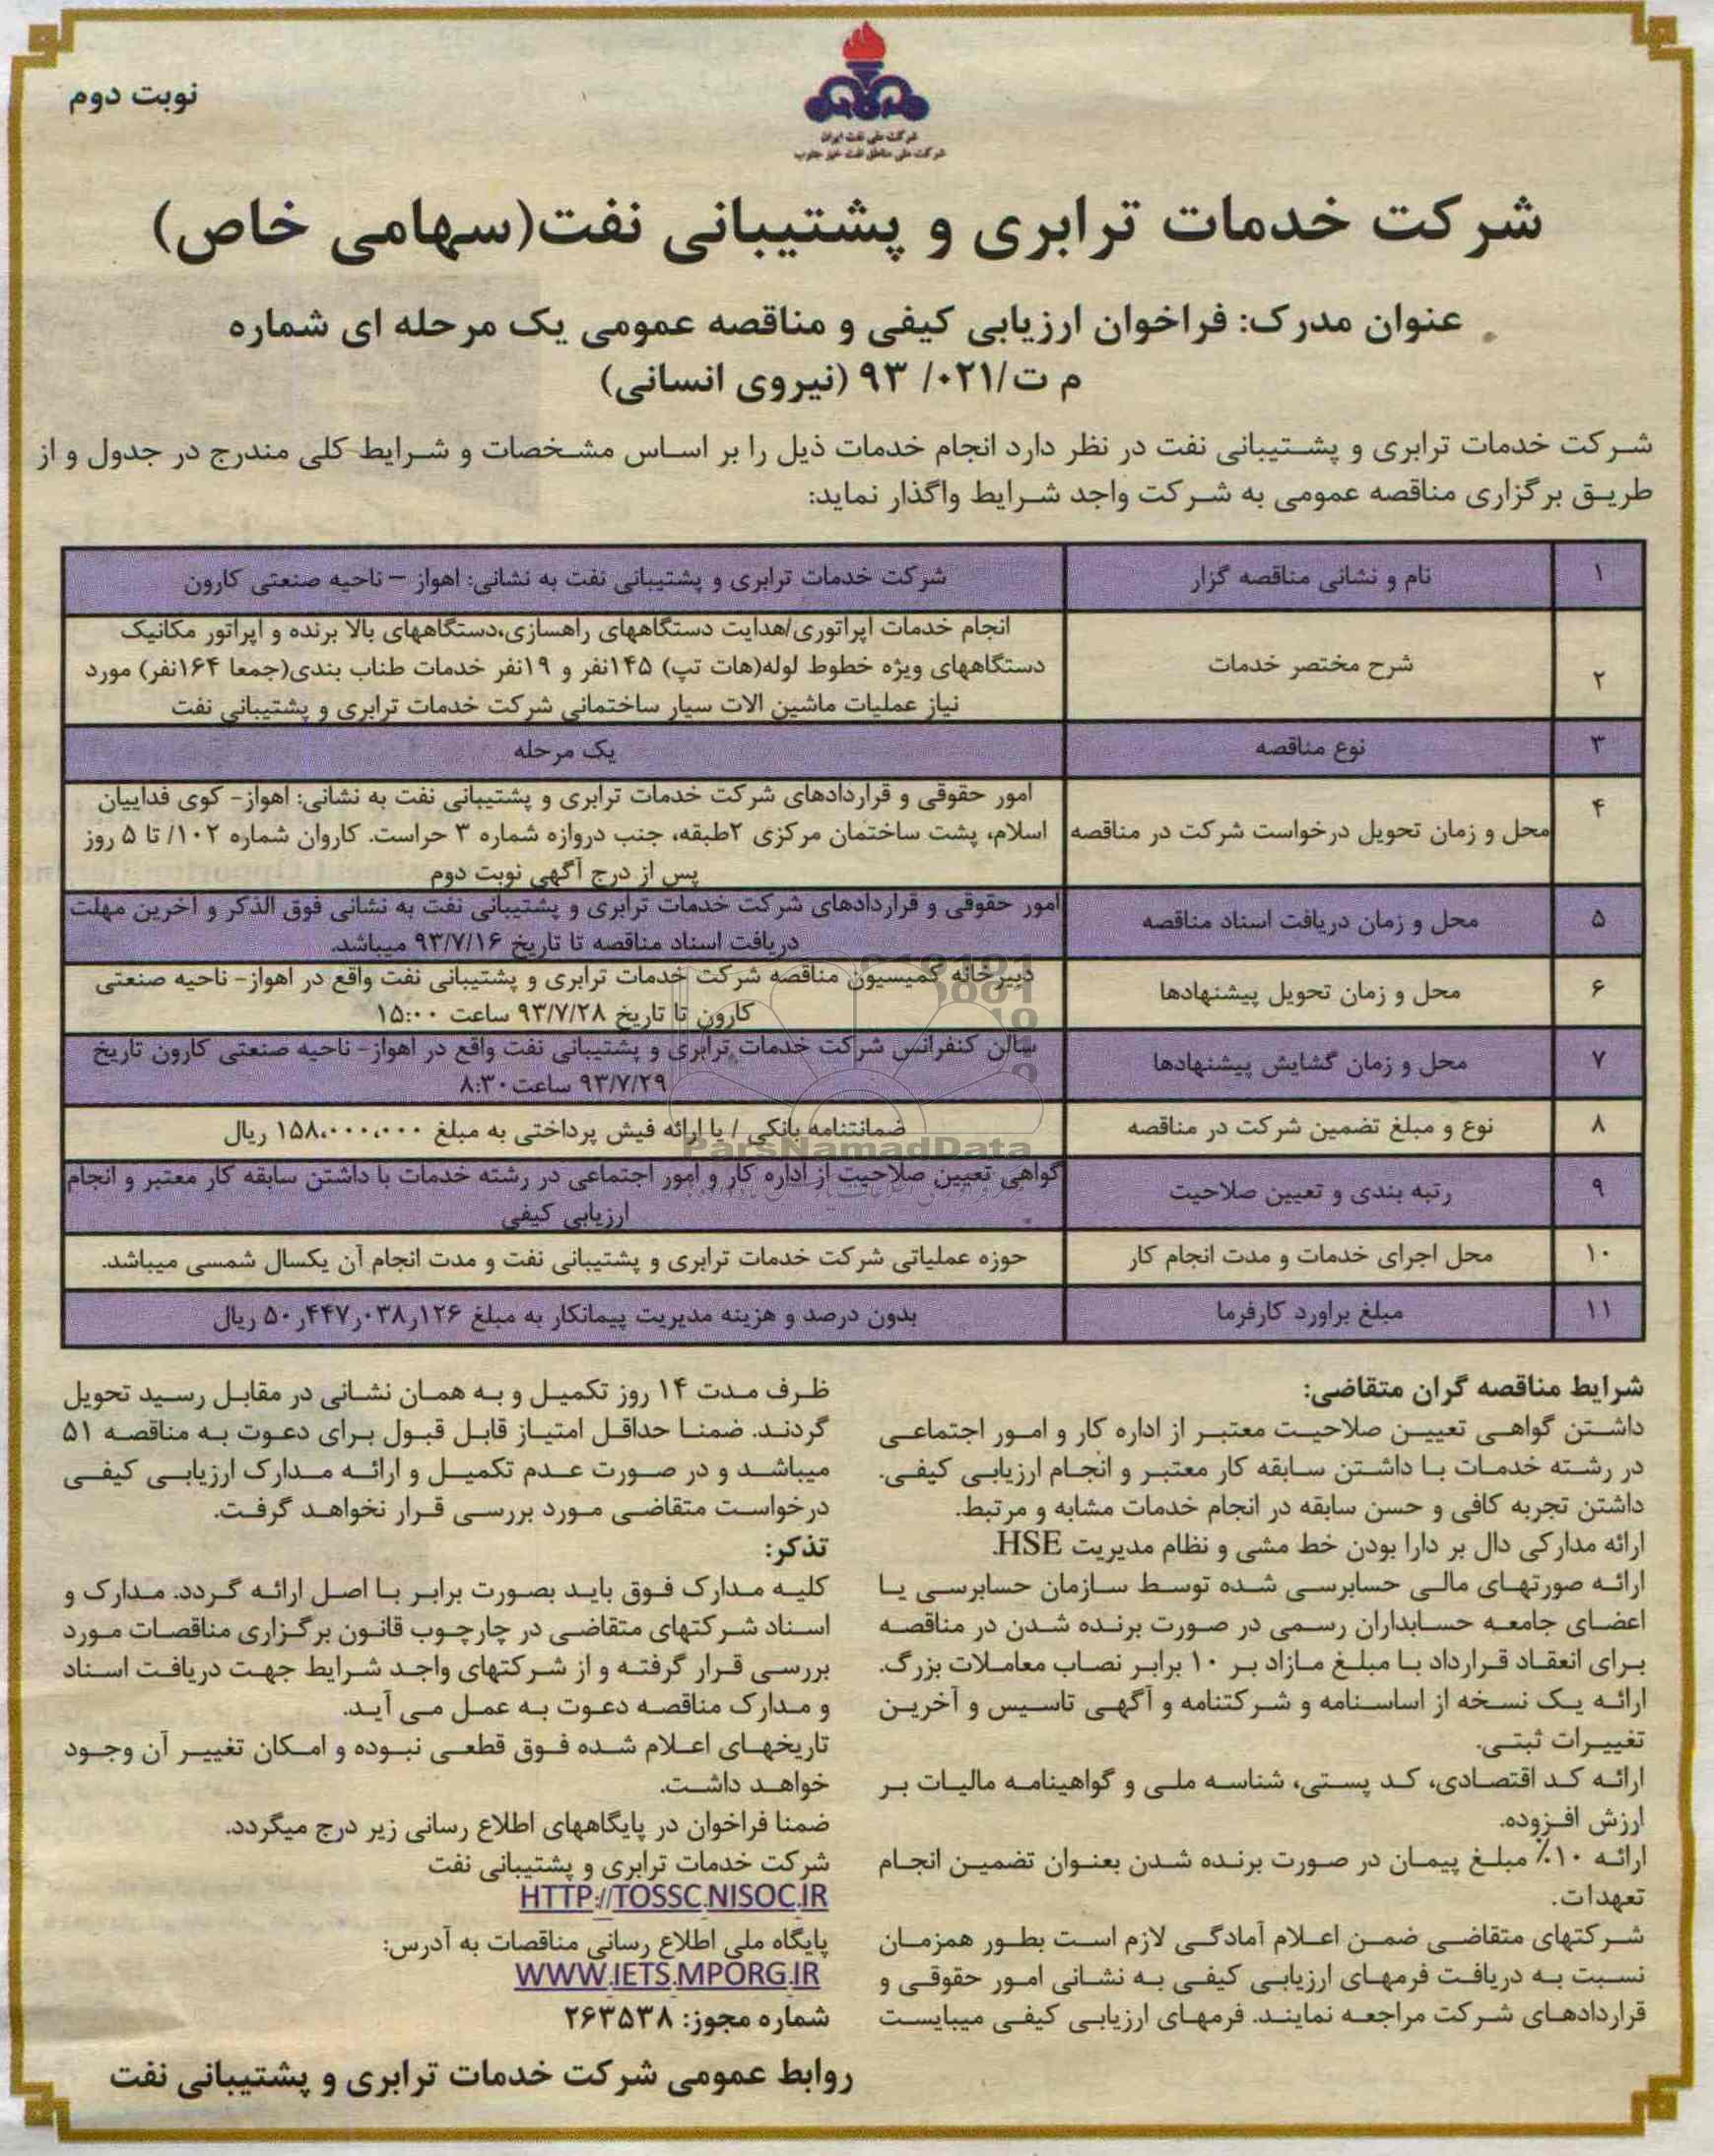 نوبت دوم
شرکت ملی نفت ایران
شرکت ملی مناطق نفت خیز جنوب
شرکت خدمات ترابری و پشتیبانی نفت(سهامی خاص)
عنوان مدرک: فراخوان ارزیابی کیفی و مناقصه عمومی یک مرحله ای شماره
م ت/۰۲۱/ ۹۳ (نیروی انسانی)
شرکت خدمات ترابری و پشتیبانی نفت در نظر دارد انجام خدمات ذیل را بر اساس مشخصات و شرایط کلی مندرج در جدول و از
طریق برگزاری مناقصه عمومی به شرکت واجد شرایط واگذار نماید:
۱ نام و نشانی مناقصه گزار شرکت خدمات ترابری و پشتیبانی نفت به نشانی: اهواز – ناحیه صنعتی کارون
انجام خدمات اپراتوری/هدایت دستگاههای راهسازی،دستگاههای بالا برنده و اپراتور مکانیک
۲ شرح مختصر خدمات دستگاههای ویژه خطوط لوله(هات تپ) ۱۴۵نفر و ۱۹نفر خدمات طناب بندی(جمعا ۱۶۴نفر) مورد
نیاز عملیات ماشین الات سیار ساختمانی شرکت خدمات ترابری و پشتیبانی نفت
۳ نوع مناقصه یک مرحله
امور حقوقی و قراردادهای شرکت خدمات ترابری و پشتیبانی نفت به نشانی: اهواز- کوی فداییان
۴ محل و زمان تحویل درخواست شرکت در مناقصه اسلام، پشت ساختمان مرکزی ۲طبقه، جنب دروازه شماره ۳ حراست. کاروان شماره ۱۰۲/ تا ۵ روز
پس از درج آگهی نوبت دوم
۵ محل و زمان دریافت اسناد مناقصه امور حقوقی و قراردادهای شرکت خدمات ترابری و پشتیبانی نفت به نشانی فوق الذکر و اخرین مهلت
دریافت اسناد مناقصه تا تاریخ ۹۳/۷/۱۶ میباشد.
۶ محل و زمان تحویل پیشنهادها دبیرخانه کمیسیون مناقصه شرکت خدمات ترابری و پشتیبانی نفت واقع در اهواز- ناحیه صنعتی
کارون تا تاریخ ۹۳/۷/۲۸ ساعت ۱۵:۰۰
۷ محل و زمان گشایش پیشنهادها سالن کنفرانس شرکت خدمات ترابری و پشتیبانی نفت واقع در اهواز- ناحیه صنعتی کارون تاریخ
۹۳/۷/۲۹ ساعت ۸:۳۰
۸ نوع و مبلغ تضمین شرکت در مناقصه ضمانتنامه بانکی / یا ارائه فیش پرداختی به مبلغ ۱۵۸،۰۰۰،۰۰۰ ریال
ParsNamadData
۹ رتبه بندی و تعیین صلاحیت گواهی تعیین صلاحیت از اداره کار و امور اجتماعی در رشته خدمات با داشتن سابقه کار معتبر و انجام
ارزیابی کیفی
۱۰ محل اجرای خدمات و مدت انجام کار حوزه عملیاتی شرکت خدمات ترابری و پشتیبانی نفت و مدت انجام آن یکسال شمسی میباشد.
۱۱ مبلغ براورد کارفرما بدون درصد و هزینه مدیریت پیمانکار به مبلغ ۵۰٫۴۴۷٫۰۳۸٫۱۲۶ ریال
شرایط مناقصه گران متقاضی:
داشتن گواهی تعیین صلاحیت معتبر از اداره کار و امور اجتماعی
در رشته خدمات با داشتن سابقه کار معتبر و انجام ارزیابی کیفی.
داشتن تجربه کافی و حسن سابقه در انجام خدمات مشابه و مرتبط.
ارائه مدارکی دال بر دارا بودن خط مشی و نظام مدیریت HSE.
ارائه صورتهای مالی حسابرسی شده توسط سازمان حسابرسی یا
اعضای جامعه حسابداران رسمی در صورت برنده شدن در مناقصه
برای انعقاد قرارداد با مبلغ مازاد بر ۱۰ برابر نصاب معاملات بزرگ.
ارائه یک نسخه از اساسنامه و شرکتنامه و آگهی تاسیس و آخرین
تغییرات ثبتی.
ارائه کد اقتصادی، کد پستی، شناسه ملی و گواهینامه مالیات بر
ارزش افزوده.
ارائه ۱۰٪ مبلغ پیمان در صورت برنده شدن بعنوان تضمین انجام
تعهدات.
شرکتهای متقاضی ضمن اعلام آمادگی لازم است بطور همزمان
نسبت به دریافت فرمهای ارزیابی کیفی به نشانی امور حقوقی و
قراردادهای شرکت مراجعه نمایند. فرمهای ارزیابی کیفی میبایست
ظرف مدت ۱۴ روز تکمیل و به همان نشانی در مقابل رسید تحویل
گردند. ضمنا حداقل امتیاز قابل قبول برای دعوت به مناقصه ۵۱
میباشد و در صورت عدم تکمیل و ارائه مدارک ارزیابی کیفی
درخواست متقاضی مورد بررسی قرار نخواهد گرفت.
تذکر:
کلیه مدارک فوق باید بصورت برابر با اصل ارائه گردد. مدارک و
اسناد شرکتهای متقاضی در چارچوب قانون برگزاری مناقصات مورد
بررسی قرار گرفته و از شرکتهای واجد شرایط جهت دریافت اسناد
و مدارک مناقصه دعوت به عمل می آید.
تاریخهای اعلام شده فوق قطعی نبوده و امکان تغییر آن وجود
خواهد داشت.
ضمنا فراخوان در پایگاههای اطلاع رسانی زیر درج میگردد.
شرکت خدمات ترابری و پشتیبانی نفت
HTTP://TOSSC.NISOC.IR
پایگاه ملی اطلاع رسانی مناقصات به آدرس:
WWW.IETS.MPORG.IR
شماره مجوز: ۲۶۳۵۳۸
روابط عمومی شرکت خدمات ترابری و پشتیبانی نفت